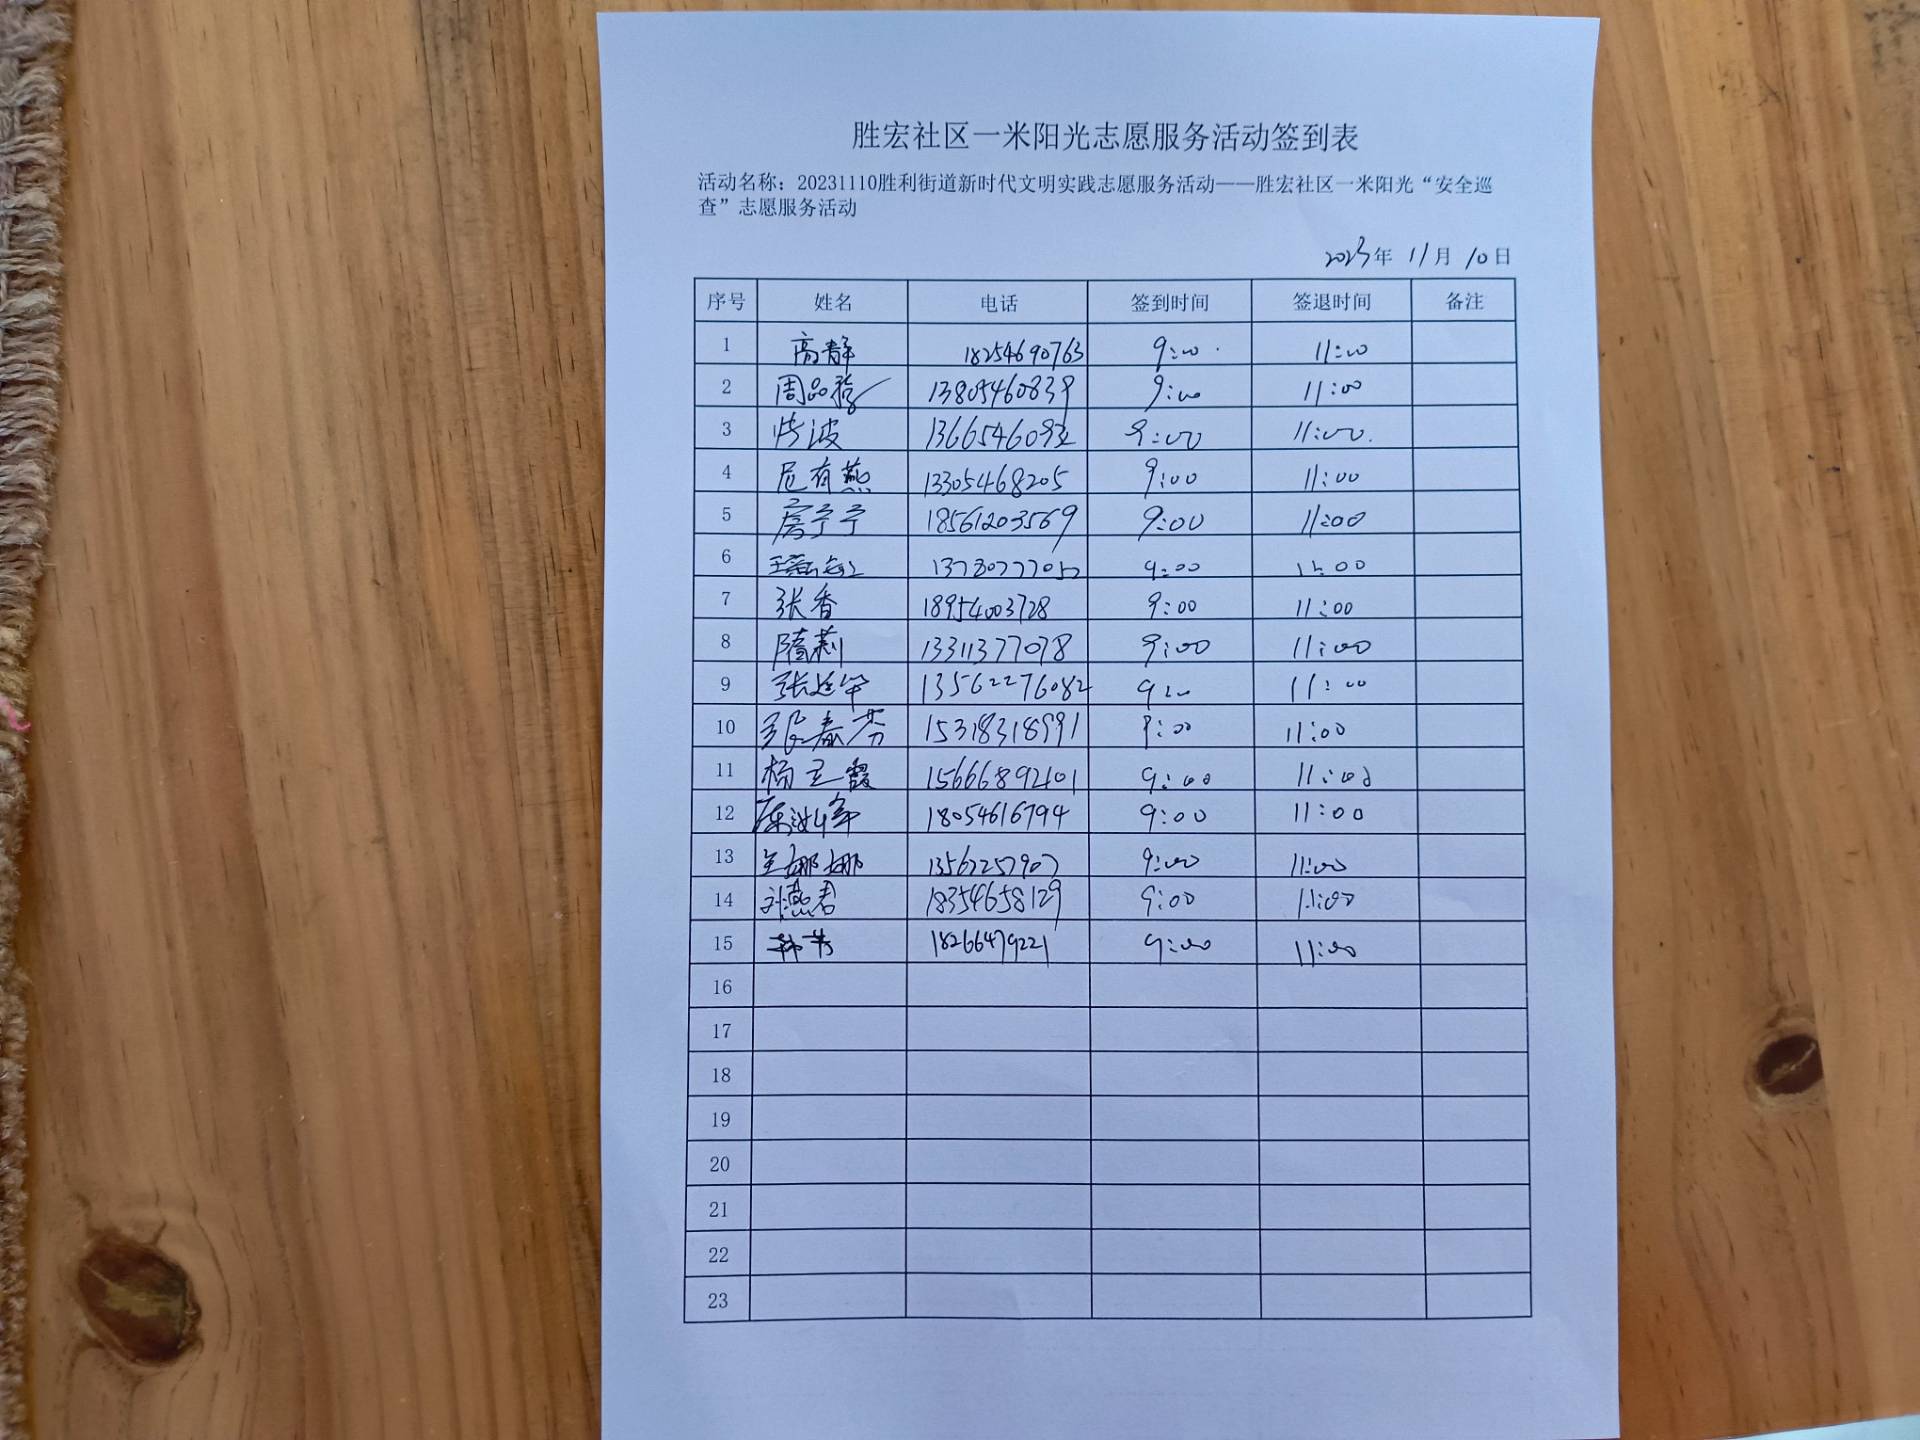 胜宏社区一米阳光志愿服务活动签到表
活动名称：20231110胜利街道新时代文明实践志愿服务活动——胜宏社区一米阳光“安全巡
查”志愿服务活动
2023年 11月 10日
序号 姓名 电话 签到时间 签退时间 备注
1 高静 18254690763 9:00 11:00
2 周品 13805460839 9:00 11:00
3 波 9:00 11:00
4 有燕 13305468205 9:00 11:00
5 房宁宁 18561203569 9:00 11:00
6 王 13730777052 9:00 11:00
7 张香 18954003728 9:00 11:00
8 隋莉 13311377078 9:00 11:00
9 张延华 13562276082 9:00 11:00
10 张春芬 15318318991 9:00 11:00
11 杨立霞 15666892401 9:00 11:00
12 陈 18054616794 9:00 11:00
13 王娜娜 13562257907 9:00 11:00
14 刘燕君 18354658129 9:00 11:00
15 韩芳 18266479221 9:00 11:00
16
17
18
19
20
21
22
23